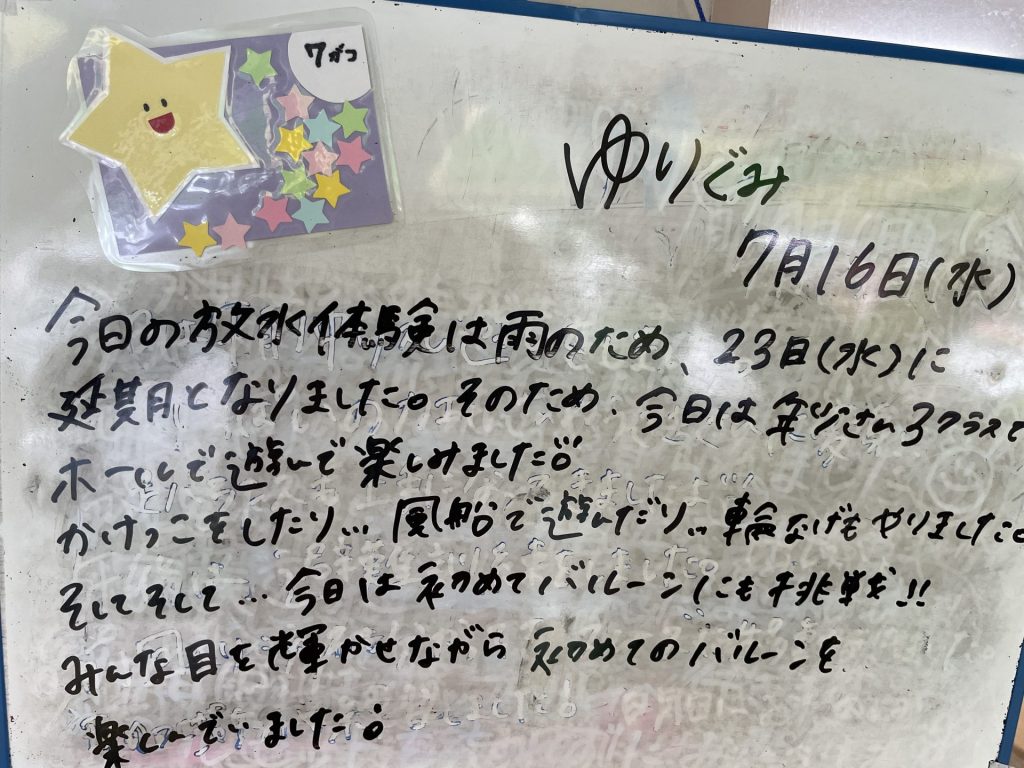 7がつ
ゆりぐみ
7月16日(水)
今日の放水体験は雨のため、23日(水)に
延期となりました。そのため、今日は年少さん3クラスで
ホールで遊んで楽しみました!
かけっこをしたり... 風船で遊んだり... 輪なげもやりました
そしてそして... 今日は初めてバルーンにも挑戦!!
みんな目を輝かせながら 初めてのバルーンを
楽しんでいました!